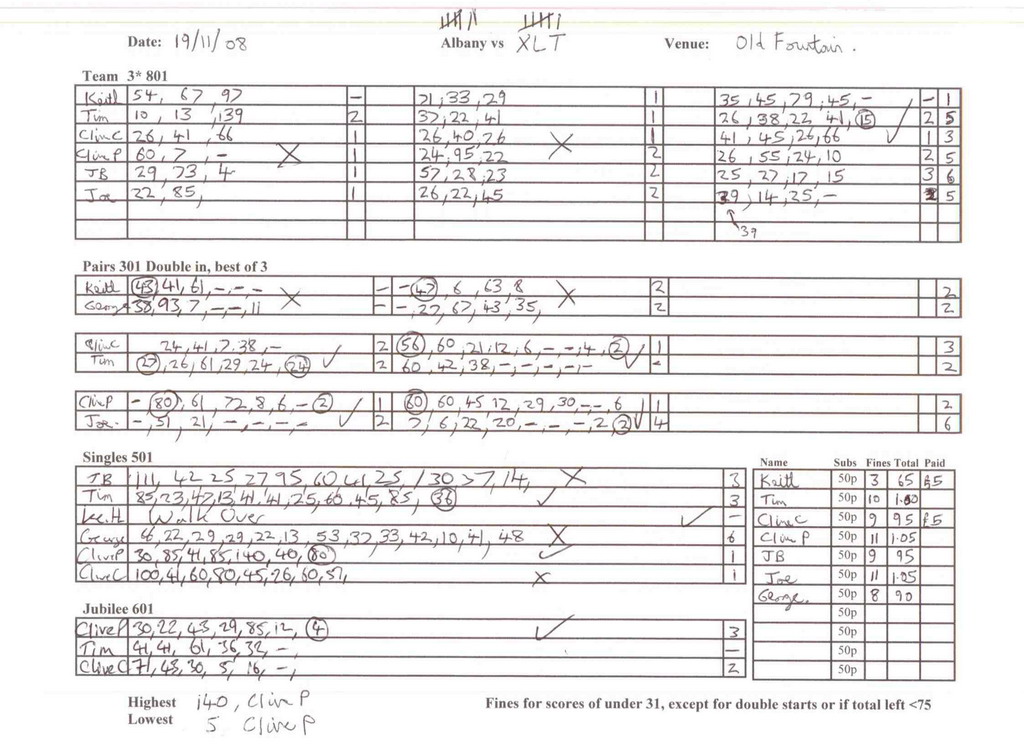 Date: 19/11/08 Albany vs XLT Venue: Old Fountain.
Team 3* 801
Keith 54, 67, 97 - 71, 33, 29 1 35, 45, 79, 45, - - 1
Tim 10, 13, 139 2 37, 22, 41 1 26, 38, 22, 41, 15 2 5
Clive C 26, 41, 66 1 26, 40, 26 1 41, 45, 26, 66 1 3
Clive P 60, 7, - X 1 24, 95, 22 X 2 26, 55, 24, 10 2 5
JB 29, 73, 4 1 57, 28, 23 2 25, 27, 17, 15 3 6
Joe 22, 85, 1 26, 22, 45 2 39, 14, 25, - 2 5
39
Pairs 301 Double in, best of 3
Keith 43, 41, 61, -, -, - X - - 47, 6, 63, 8 X 2 2
George 38, 93, 7, -, -, 11 - -, 27, 67, 43, 35, 2 2
Clive C 24, 41, 7, 38, - 2 56, 60, 21, 12, 6, -, -, 4, 2 1 3
Tim 27, 26, 61, 29, 24, 24 2 60, 42, 38, -, -, -, -, - - 2
Clive P -, 80, 61, 72, 8, 6, -, 2 1 60, 60, 45, 12, 29, 30, -, -, 6 1 2
Joe. -, 51, 21, -, -, -, - 2 7, 6, 22, 20, -, -, -, 2, 2 4 6
Singles 501
JB 111, 42 25 27 95, 60 41, 25, 130 > 7, 14, X 3
Tim 85, 23, 47, 13, 41, 41, 25, 60, 45, 85, 36 3
Keith Walk Over -
George 66, 22, 29, 29, 22, 13, 53, 37, 33, 42, 10, 41, 48 X 6
Clive P 30, 85, 41, 85, 140, 40, 80 1
Clive C 100, 41, 60, 80, 45, 26, 60, 57, X 1
Name Subs Fines Total Paid
Keith 50p 3 65 £5
Tim 50p 10 1.00
Clive C 50p 9 95 £5
Clive P 50p 11 1.05
JB 50p 9 95
Joe 50p 11 1.05
George. 50p 8 90
50p
50p
50p
50p
50p
Jubilee 601
Clive P 30, 22, 43, 29, 85, 12, 4 3
Tim 41, 41, 61, 36, 32, - -
Clive C 71, 43, 30, 5, 16, -, 2
Highest 140, Clive P
Lowest 5 Clive P
Fines for scores of under 31, except for double starts or if total left <75